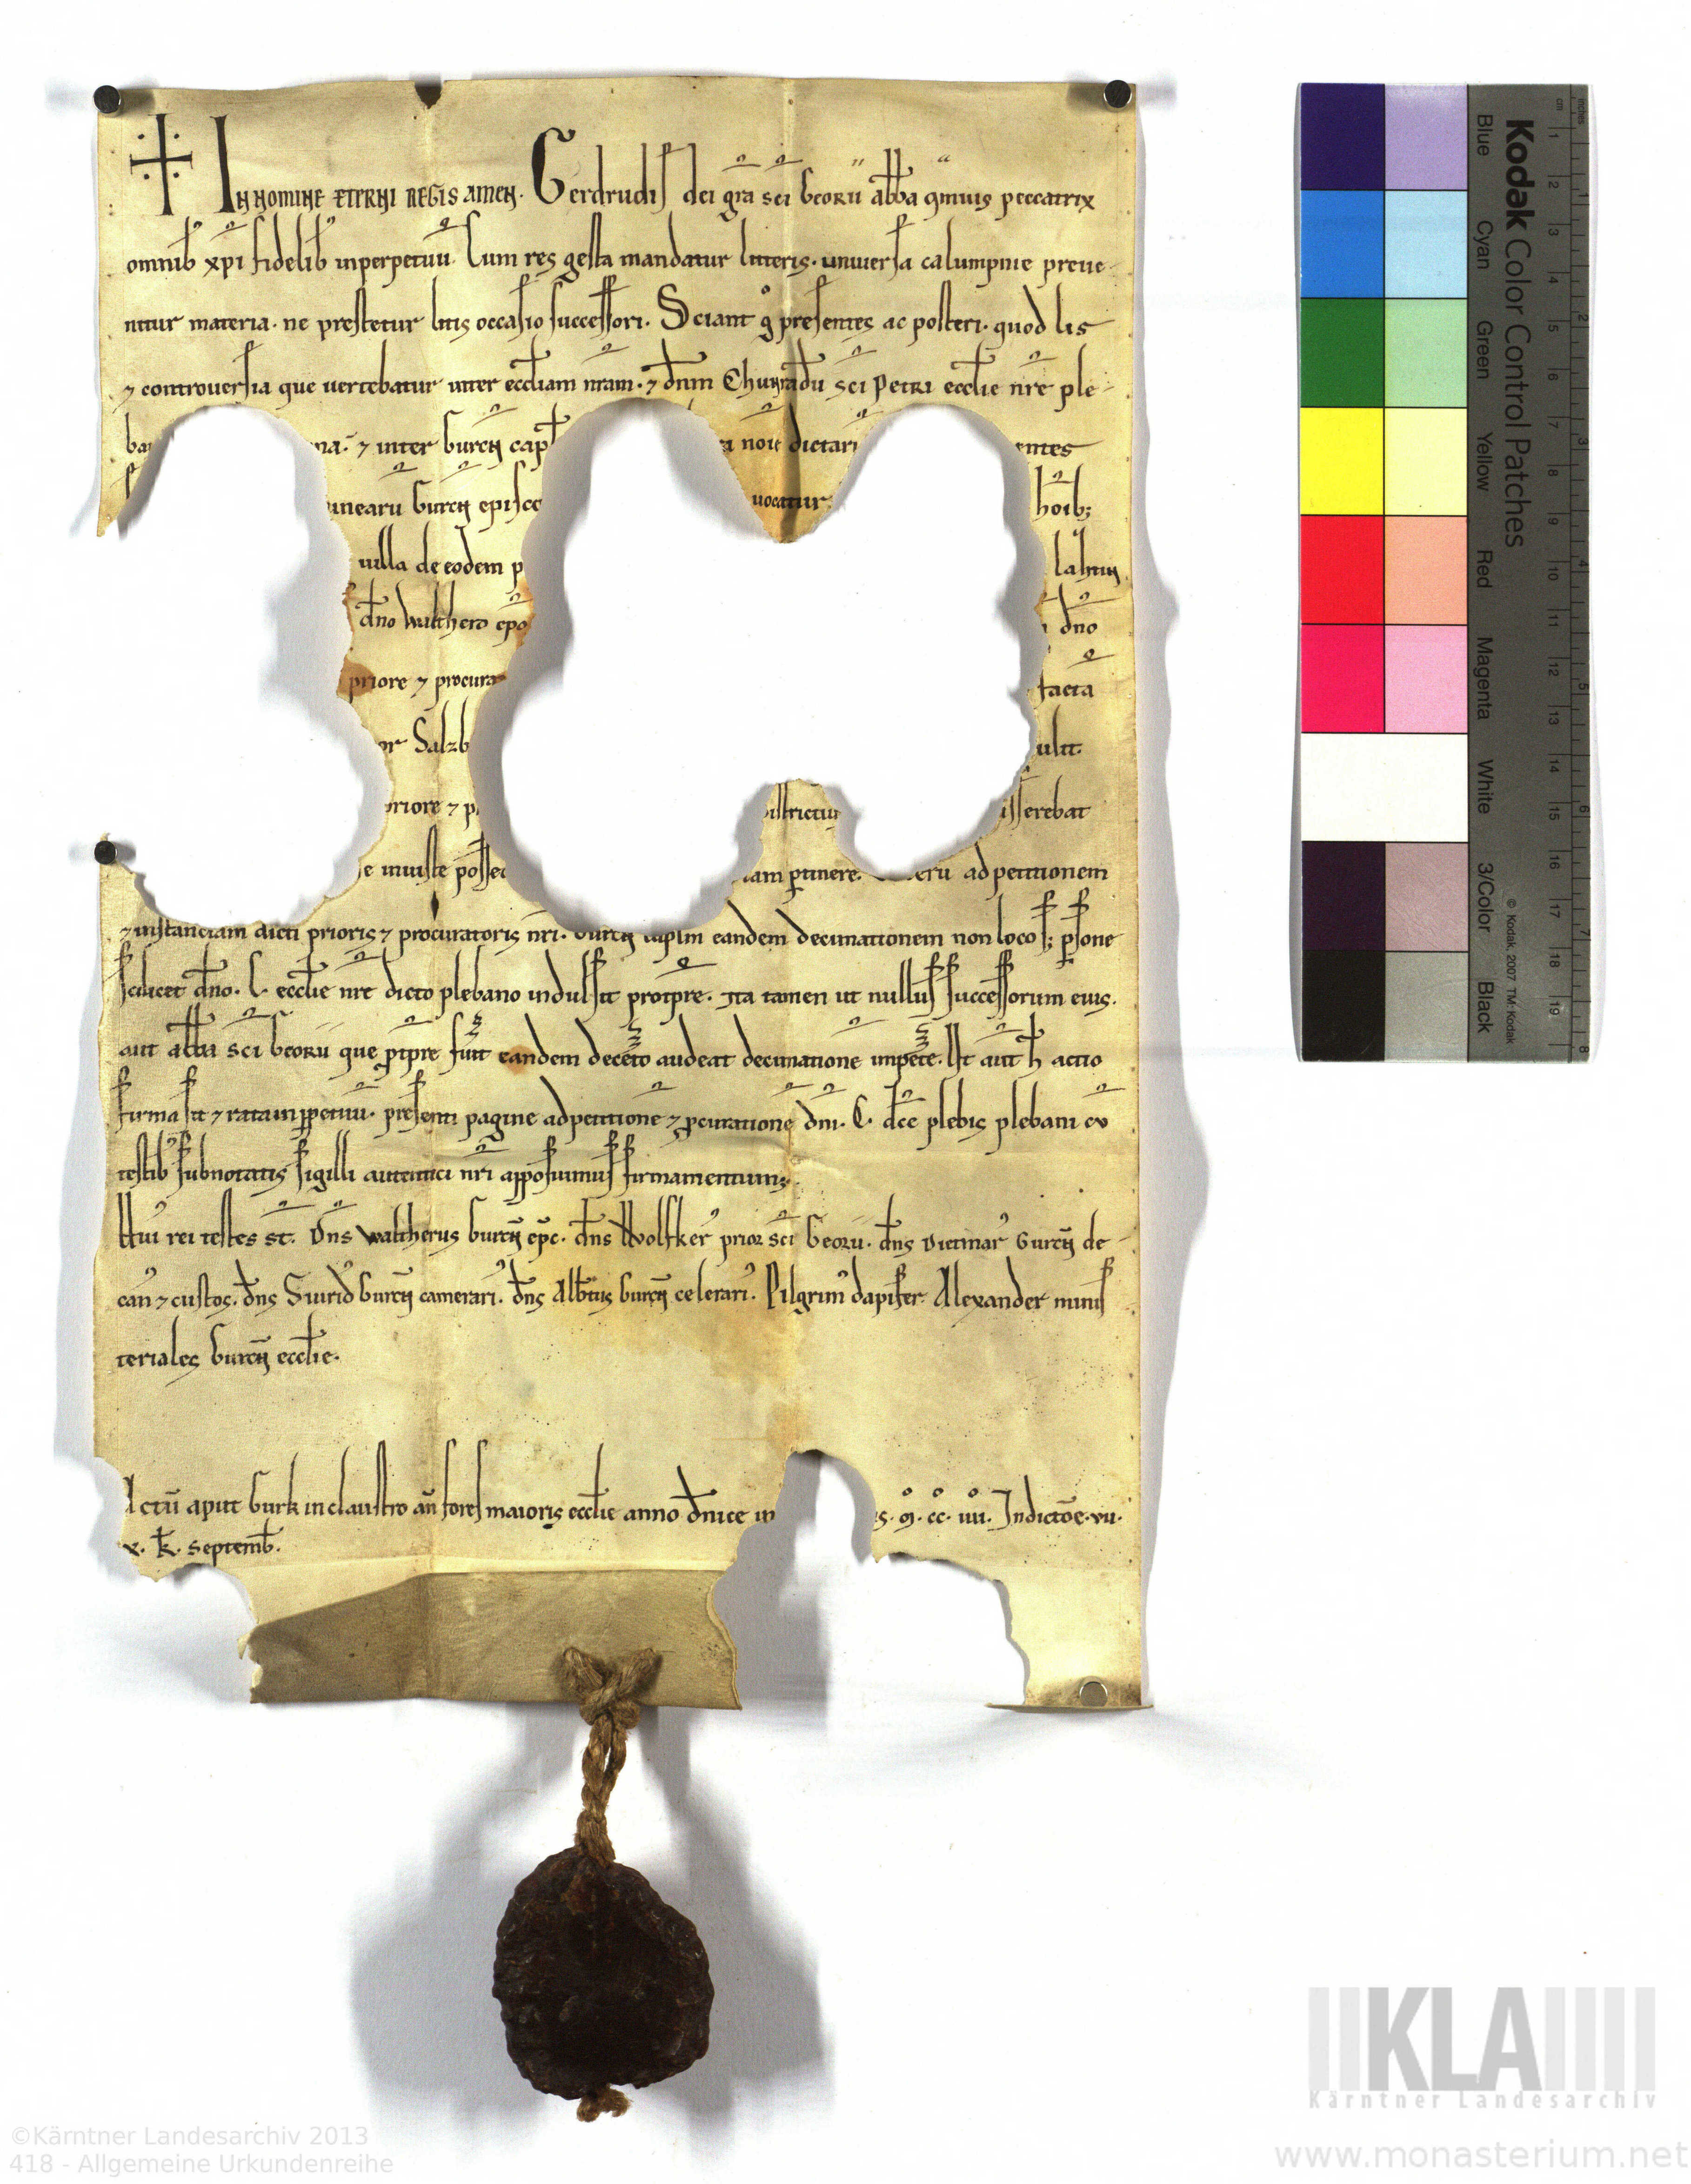 In nomine eterni regis amen. Gerdrudis dei gr̄a sc̄i Georii abb̄a qͣmuis peccatrix
omnib; xp̄i fidelib; inperpetuū. Cum res gesta mandatur litteris. uniuersa calumpnie preue
nitur materia. ne prestetur litis occasio successori. Sciant gͦ presentes ac posteri. quod lis
⁊ controuersia que uertebatur inter eccl̄iam nr̄am. ⁊ dn̄m Chunradū sc̄i Petri eccl̄ie nr̄e ple
⁊ inter Gurcn̄ dictari entes
Gurcn̄ episco uocatur hōib;
uilla de eodem p
dn̄o Walthero ep̄o dn̄o
priore ⁊ procura facta
Salzb ulit.
priore ⁊ p istrictu isserebat
e iniuste posse iam ꝑtinere. adpetitionem
⁊ instanciam dicti prioris ⁊ procuratoris nr̄i. Gurcn̄ capl̄m eandem decimationem non loco s; ꝑsone
scilicet dn̄o. C. eccl̄ie nr̄e dicto plebano indulsit ꝓtꝑre. Ita tamen ut nullus successorum eius.
aut abb̄a sc̄i Georii que ꝓtꝑre fuit eandem decet̄o audeat decimationē impet̄e. Ut aut̄ h̄ actio
firma sit ⁊ rata inꝑpetuū. presenti pagine adpetitionē ⁊ ꝓcurationē dn̄i. C. dc̄e plebis plebani cū
testib; subnotatis sigilli autentici nr̄i apposuimus firmamentum.
Huiꝰ rei testes st̄. Dn̄s Waltherus Gurcn̄ ep̄c. dn̄s Wolfkerꝰ prior sc̄i Georii. dn̄s Dietmarꝰ Gurcn̄ de
canꝰ ⁊ custos. dn̄s Siuridꝰ Gurcn̄ camerariꝰ. dn̄s Alb̄tus Gurcn̄ celerariꝰ. Pilgrimꝰ dapifer. Alexander minis
teriales Gurcn̄ eccl̄ie.
Actū aput Gurk in claustro an̄ fores maioris eccl̄ie anno dn̄ice in s. Mͦ. ccͦ. iiiiͦ. Indictōe. vii.
x. k̄. septemb̄.
Kodak Color Control Patches
© Kodak, 2007 TM: Kodak
Blue
Cyan
Green
Yellow
Red
Magenta
White
3/Color
Black
cm 1 2 3 4 5 6 7 8 9 10 11 12 13 14 15 16 17 18 19
inches 1 2 3 4 5 6 7 8
KLA
Kärntner Landesarchiv
©Kärntner Landesarchiv 2013
418 - Allgemeine Urkundenreihe
www.monasterium.net